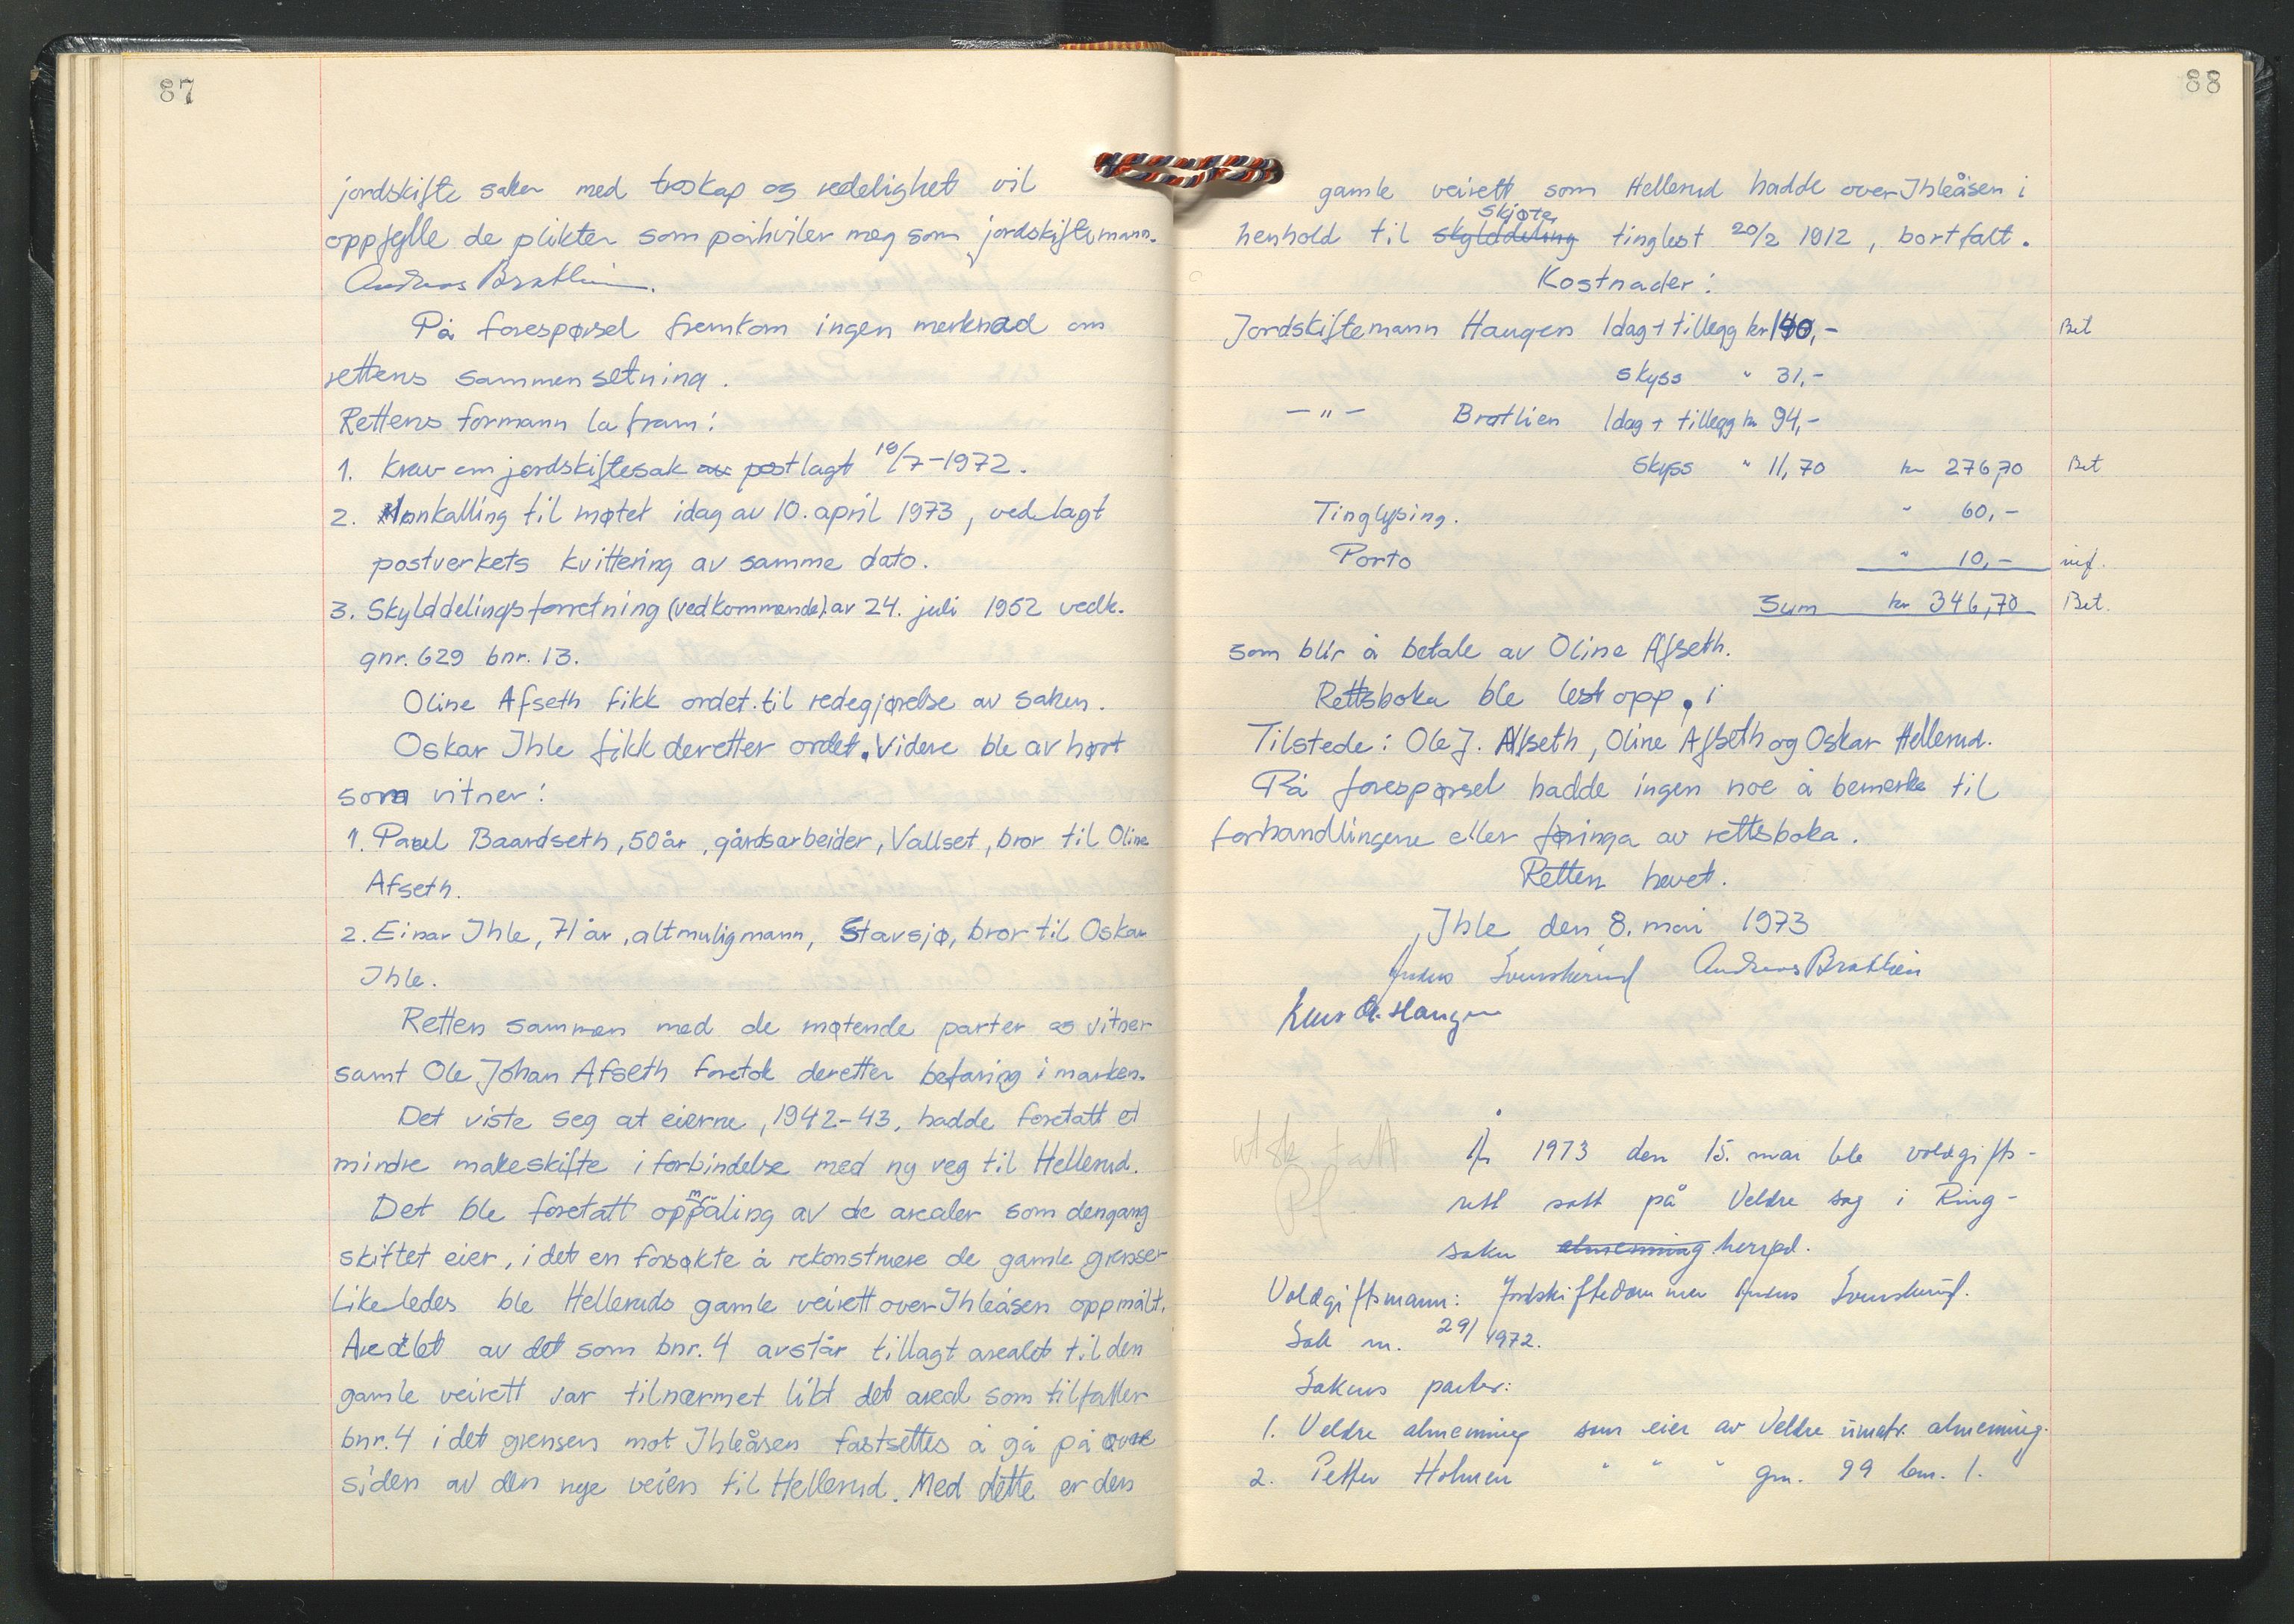 87
jordskifte saker med troskap og redelighet vil
oppfylle de plikter som påhviler meg som jordskiftemann.
Andreas Bratlien.
På forespørsel fremkom ingen merknad om
rettens sammensetning.
Rettens formann la fram:
1. Krav om jordskiftesak av postlagt 18/7-1972.
2. Innkalling til møtet idag av 10. april 1973, vedlagt
postverkets kvittering av samme dato.
3. Skylddelingsforretning (vedkommende) av 24. juli 1952 vedk.
gnr. 629 bnr. 13.
Oline Afseth fikk ordet til redegjørelse av saken.
Oskar Ihle fikk deretter ordet. Videre ble avhørt
som vitner:
1. Paul Baardseth, 50 år, gårdsarbeider, Vallset, bror til Oline
Afseth.
2. Einar Ihle, 71 år, altmuligmann, Stavsjø, bror til Oskar
Ihle.
Retten sammen med de møtende parter og vitner
samt Ole Johan Afseth foretok deretter befaring i marken.
Det viste seg at eierne, 1942-43, hadde foretatt et
mindre makeskifte i forbindelse med ny veg til Hellerud.
Det ble foretatt oppmåling av de arealer som dengang
skiftet eier, i det en forsøkte å rekonstruere de gamle grenser
Likeledes ble Helleruds gamle veirett over Ihleåsen oppmålt.
Arealet av det som bnr. 4 avstår tillagt arealet til den
gamle veirett var tilnærmet likt det areal som tilfaller
bnr. 4 i det grensen mot Ihleåsen fastsettes å gå på øvre
siden av den nye veien til Hellerud. Med dette er den
88
gamle veirett som Hellerud hadde over Ihleåsen i
henhold til skylddeling skjøte, tinglest 20/2 1912, bortfalt.
Kostnader:
Jordskiftemann Haugen 1 dag + tillegg kr 140,- Bet
skyss " 31,-
- " - Bratlien 1 dag + tillegg kr 94,-
skyss " 11,70 kr 276,70 Bet
Tinglysing. " 60,-
Porto " 10,-
Sum kr 346,70 Bet.
som blir å betale av Oline Afseth.
Rettsboka ble lest opp. i
Tilstede: Ole J. Afseth, Oline Afseth og Oskar Hellerud.
På forespørsel hadde ingen noe å bemerke til
forhandlingene eller føringa av rettsboka.
Retten hevet.
Ihle den 8. mai 1973
Andreas Bratlien
Haugen
År 1973 den 15. mai ble voldgifts-
rett satt på Veldre sag i Ring-
saker almenning herred.
Voldgiftsmann: Jordskiftedommer
Sak nr. 29/1972.
Sakens parter:
1. Veldre almenning som eier av Veldre umatr. almenning.
2. Petter Holmen " " " gnr. 99 bnr. 1.